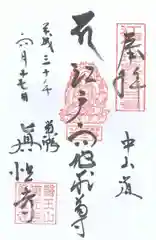 奉拝
中山道
江戸六地蔵尊
巣鴨
眞性寺
平成三十年
六月十七日
醫王山